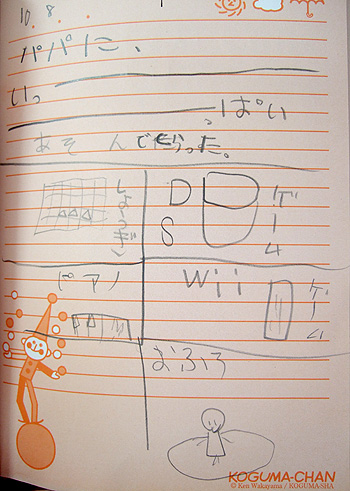 10. 8.
パパに、
いっ
ぱい
あそんでもらった。
しょうぎ
DS
ゲーム
ピアノ
Wii
ゲーム
おふろ
KOGUMA-CHAN
© Ken Wakayama / KOGUMA-SHA